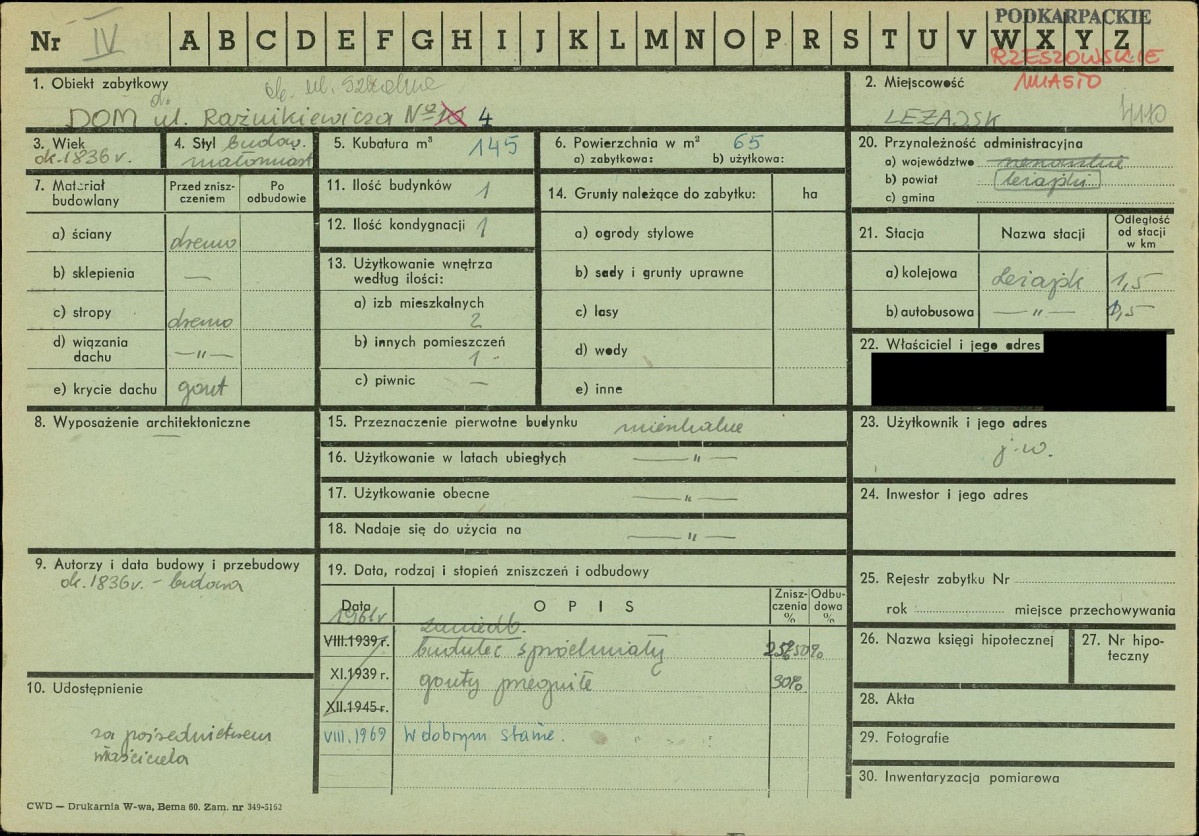 PODKARPACKIE
Nr IV A B C D E F G H I J K L M N O P R S T U V W X Y Z
RZESZOWSKIE
MIASTO
1. Obiekt zabytkowy
ok. ul. Szkolna
DOM ul. Raźnikiewicza № 10 4
2. Miejscowość
LEŻAJSK
3. Wiek
ok. 1836 v.
4. Styl budow.
małomiast
5. Kubatura m³ 145
6. Powierzchnia w m² 65
a) zabytkowa: b) użytkowa:
20. Przynależność administracyjna
a) województwo
b) powiat leżajski
c) gmina
7. Materiał budowlany
Przed zniszczeniem
Po odbudowie
a) ściany drewno
b) sklepienia —
c) stropy drewno
d) wiązania dachu —„—
e) krycie dachu gont
11. Ilość budynków 1
12. Ilość kondygnacji 1
13. Użytkowanie wnętrza
według ilości:
a) izb mieszkalnych
2
b) innych pomieszczeń
1
c) piwnic —
14. Grunty należące do zabytku: ha
a) ogrody stylowe
b) sady i grunty uprawne
c) lasy
d) wody
e) inne
21. Stacja
Nazwa stacji
Odległość od stacji w km
a) kolejowa Leżajsk 1,5
b) autobusowa —„— 1,5
22. Właściciel i jego adres
8. Wyposażenie architektoniczne
—
15. Przeznaczenie pierwotne budynku mieszkalne
16. Użytkowanie w latach ubiegłych —„—
17. Użytkowanie obecne —„—
18. Nadaje się do użycia na —„—
23. Użytkownik i jego adres
j.w.
24. Inwestor i jego adres
9. Autorzy i data budowy i przebudowy
ok. 1836 v. – budowa
19. Data, rodzaj i stopień zniszczeń i odbudowy
Data
OPIS
Zniszczenia %
Odbudowa %
1961 r.
zaniedb.
VIII.1939 r. budulec spróchniały 25% 50%
XI.1939 r. gonty przegniłe 30%
XII.1945 r.
VIII.1969 W dobrym stanie.
25. Rejestr zabytku Nr
rok miejsce przechowywania
26. Nazwa księgi hipotecznej
27. Nr hipoteczny
28. Akta
29. Fotografie
30. Inwentaryzacja pomiarowa
10. Udostępnienie
za pośrednictwem
właściciela
CWD — Drukarnia W-wa, Bema 60. Zam. nr 349-5162